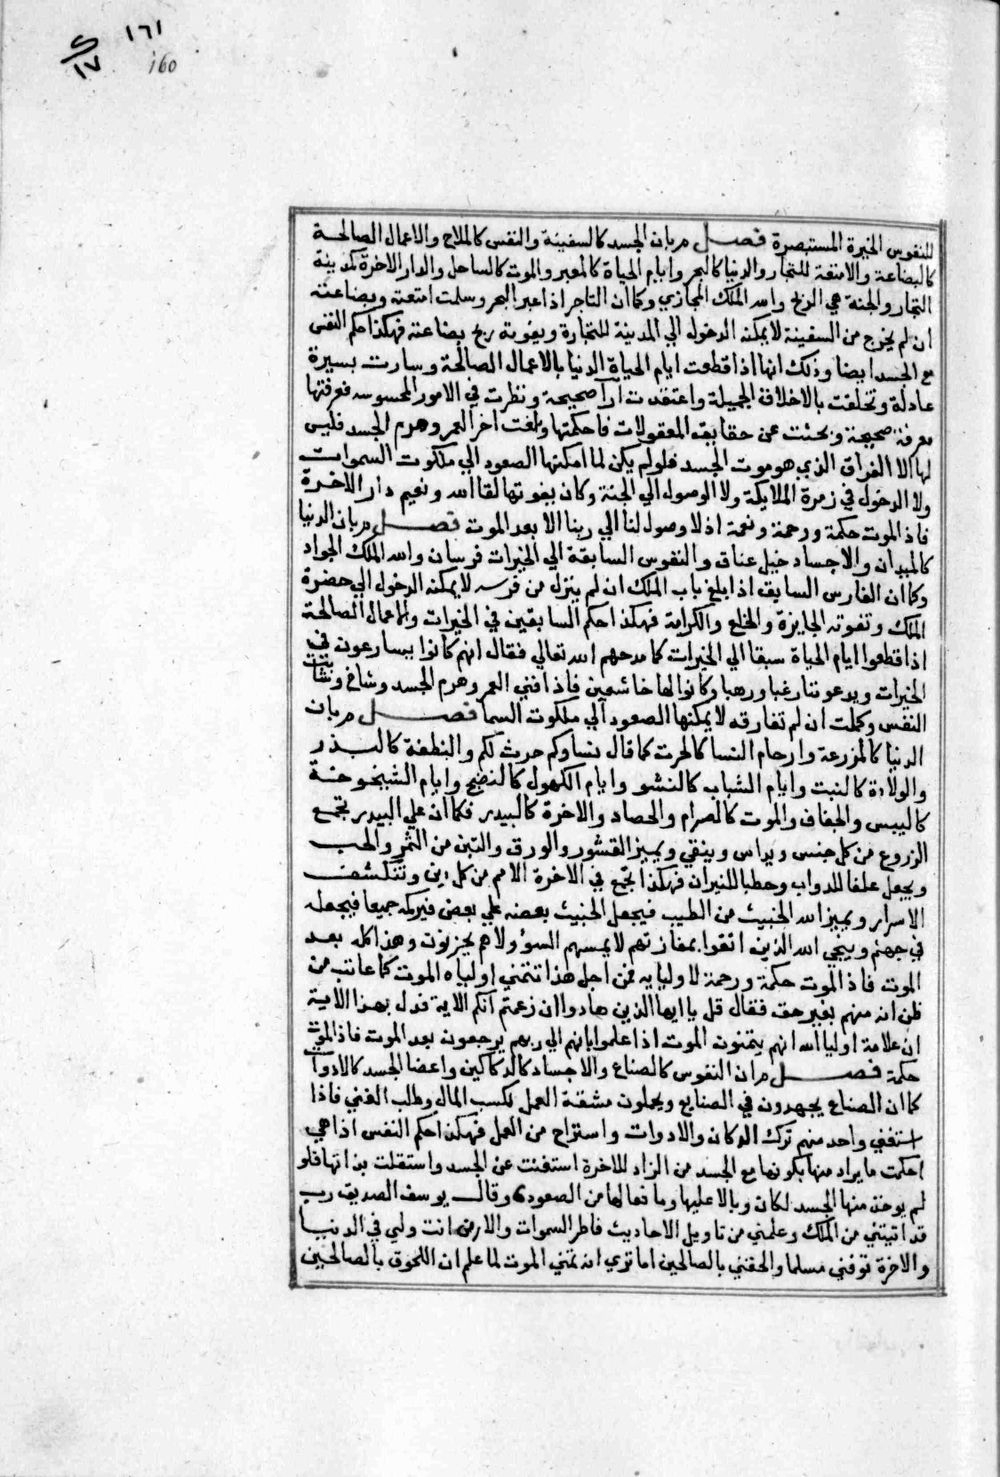 ١٦١
٥/١٧
160
للنفوس الخيرة المستبصرة فصل مربان الجسد كالسفينة والنفس كالملاح والاعمال الصالحة
كالبضاعة والامتعة للتجار والدنيا كالبحر وايام الحياة كالمعبر والموت كالساحل والدار الاخرة كمدينة
التجار والجنة هي الربح والله الملك المجازي وكما ان التاجر اذا عبر البحر وسلمت امتعته وبضاعته
ان لم يخرج من السفينة لا يمكنه الدخول الي المدينة للتجارة ويفوته ربح بضاعته فهكذا حكم النفس
مع الجسد ايضا وذلك انها اذا قطعت ايام الحياة الدنيا بالاعمال الصالحة وسارت بسيرة
عادلة وتخلقت بالاخلاق الجميلة واعتقدت ارآ صحيحة ونظرت في الامور المحسوسه فعرفتها
معرفة صحيحة وبحثت عن حقايق المعقولات فاحكمتها وبلغت اخر العمر وهرم الجسد فليس
لها الا الفراق الذي هو موت الجسد فلو لم يكن لما امكنها الصعود الي ملكوت السموات
ولا الدخول في زمرة الملايكة ولا الوصول الي الجنة وكان يفوتها لقا الله ونعيم دار الاخرة
فاذ الموت حكمة ورحمة ونعمة اذ لا وصول لنا الي ربنا الا بعد الموت فصل مربان الدنيا
كالميدان والاجساد خيل عتاق والنفوس السابقة الي الخيرات فرسان والله الملك الجواد
وكما ان الفارس السابق اذا بلغ باب الملك ان لم ينزل من فرسه لا يمكنه الدخول الي حضرة
الملك وتفوته الجايزة والخلع والكرامة فهكذا حكم السابقين في الخيرات والاعمال الصالحة
اذا قطعوا ايام الحياة سبقا الي الخيرات كما مدحهم الله تعالي فقال انهم كانوا يسارعون في
الخيرات ويدعوننا رغبا ورهبا وكانوا لها خاشعين فاذا فني العمر وهرم الجسد وشاخ ونشات
النفس وكملت ان لم تفارقه لا يمكنها الصعود الي ملكوت السما فصل مربان
الدنيا كالمزرعة وارحام النسا كالحرث كما قال نساوكم حرث لكم والنطفة كالبذر
والولادة كالنبت وايام الشباب كالنشو وايام الكهول كالنضج وايام الشيخوخة
كاليبس والجفاف والموت كالصرام والحصاد والاخرة كالبيدر فكما ان علي البيدر تجمع
الزروع من كل جنس ويداس وينقي ويميز القشور والورق والتبن من الثمر والحب
ويجعل علفا للدواب وحطبا للنيران فهكذا تجمع في الاخرة الامم من كل دين وتنكشف
الاسرار ويميز الله الخبيث من الطيب فيجعل الخبيث بعضه علي بعض فيركمه جميعا فيجعله
في جهنم وينجي الله الذين اتقوا بمفازتهم لا يمسهم السؤ ولا هم يحزنون وهذا كله بعد
الموت فاذ الموت حكمة ورحمة لاوليايه فمن اجل هذا تتمني اولياه الموت كما عاتب من
ظن انه منهم بغير حق فقال قل يا ايها الذين هادوا ان زعمتم انكم الاية فدل بهذا الاية
ان علامة اوليا الله انهم يتمنون الموت اذا علموا بانهم الي ربهم يرجعون بعد الموت فاذ الموت
حكمة فصل مران النفوس كالصناع والاجساد كالدكاكين واعضا الجسد كالادوات
كما ان الصناع يجهدون في الصنايع ويحملون مشقة العمل لكسب المال وطلب الغني فاذا
استغني واحد منهم ترك الدكان والادوات واستراح من العمل فهكذا حكم النفس اذا هي
احكمت ما يراد منها بكونها مع الجسد من الزاد للاخرة استغنت عن الجسد واستقلت بذاتها فلو
لم يوخذ منها الجسد لكان وبالا عليها ومانعا لها من الصعود وقال يوسف الصديق رب
قد اتيتني من الملك وعلمتني من تاويل الاحاديث فاطر السموات والارض انت ولي في الدنيا
والاخرة توفني مسلما والحقني بالصالحين اما تري انه تمني الموت لما علم ان اللحوق بالصالحين